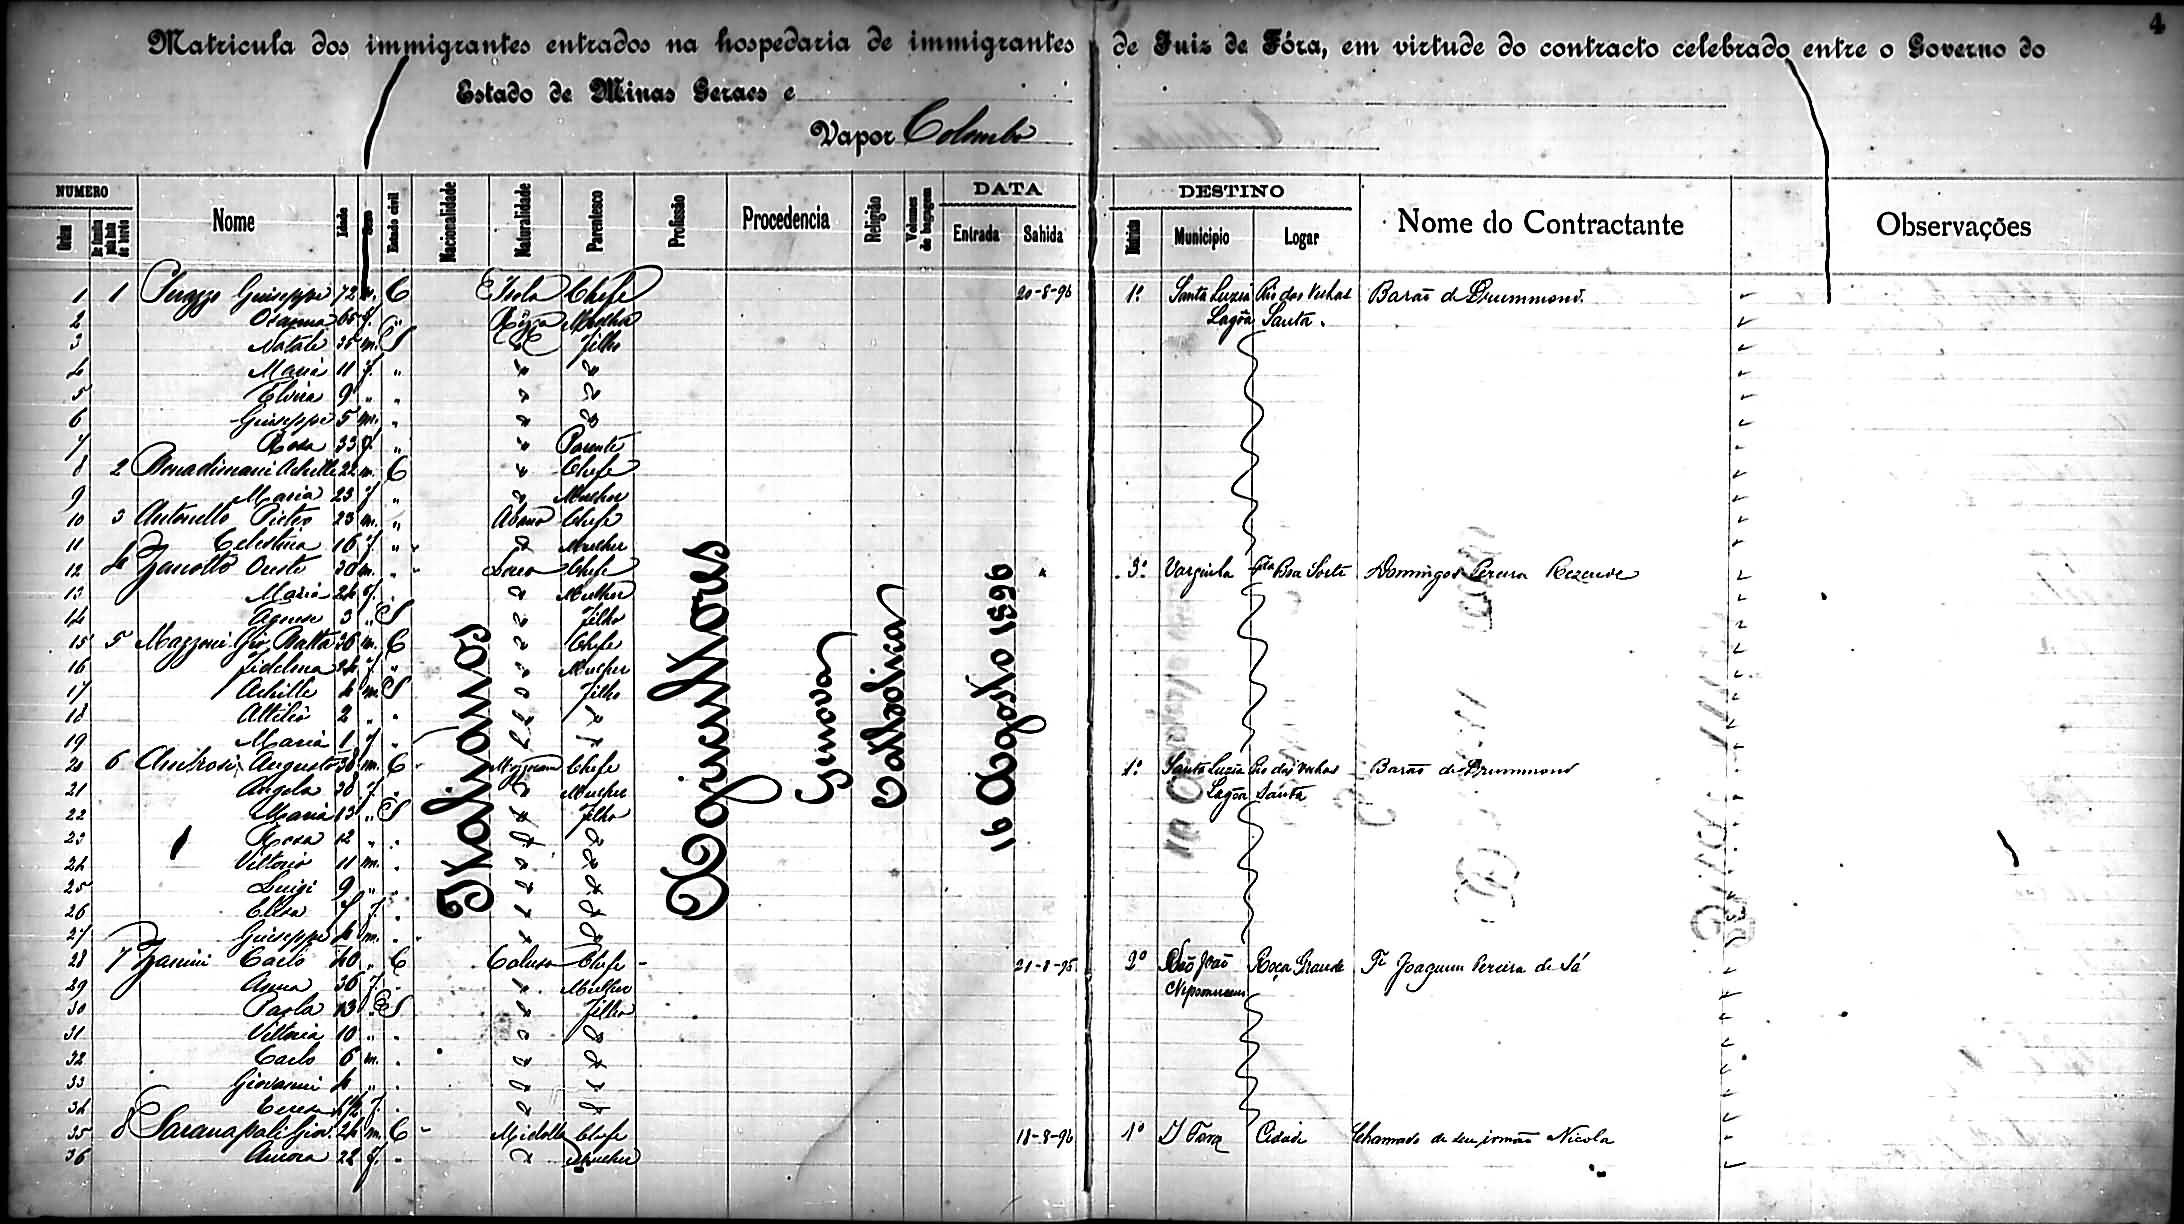 4
Matricula dos immigrantes entrados na hospedaria de immigrantes de Juiz de Fóra, em virtude do contracto celebrado entre o Governo do
Estado de Minas Geraes e
Vapor Colombo
NUMERO Nome Idade Sexo Estado civil Nacionalidade Naturalidade Parentesco Profissão Procedencia Religião Volumes de bagagem DATA DESTINO Nome do Contractante Observações
Ordem Entrada Sahida Districto Municipio Logar
Italianos Agricultores Genova Catholica 16 Agosto 1896
1 1 Giuseppe 72 m. C Isola Chefe 20-8-96 1º Santa Luzia Rio das Velhas Barão de Drummond.
2 65 f. " Mulher Lagôa Santa.
3 Natale 35 m. S Filho
4 Maria 11 f. " " "
5 Elvira 9 " " " "
6 Giuseppe 5 m. " " "
7 Rosa 33 f. " " Parente
8 2 Achille 22 m. C " Chefe
9 Maria 23 f " " Mulher
10 3 Antonello Pietro 23 m. " Abano Chefe
11 Celestina 16 f. " " Mulher
12 4 Zanotto Oreste 30 m. " Chefe " 3º Varginha Fda Boa Sorte Domingos Pereira Rezende
13 Maria 24 f. " " Mulher
14 Agnese 3 " S " Filho
15 5 Mazzoni Gio Batta 36 m. C " Chefe
16 24 f. " " Mulher
17 Achille 4 m S " Filho
18 Attilio 2 " " " "
19 Maria 1 f. " " "
20 6 Ambrosi Augusto 38 m. C Chefe 1º Santa Luzia Rio das Velhas Barão de Drummond
21 Angela 38 f. " " Mulher Lagôa Santa
22 Maria 13 " S " Filho
23 Rosa 12 " " " "
24 Vittorio 11 m. " " "
25 Luigi 9 " " " "
26 Elisa 7 f. " " "
27 Giuseppe 4 m. " " "
28 7 Zanini Carlo 40 " C Chefe 21-8-96 2º São João Roça Grande Fr. Joaquim Pereira de Sá
29 Anna 36 f. " " Mulher Nepomuceno
30 Paola 13 " S " Filho
31 Vittoria 10 " " " "
32 Carlo 6 m. " " "
33 Giovanni 4 " " " "
34 Teresa f. " " "
35 8 Giov. 24 m. C Midolla Chefe 18-8-96 1º J Fora Cidade Chamado de seu irmão Nicola
36 Aurora 22 f. " " Mulher